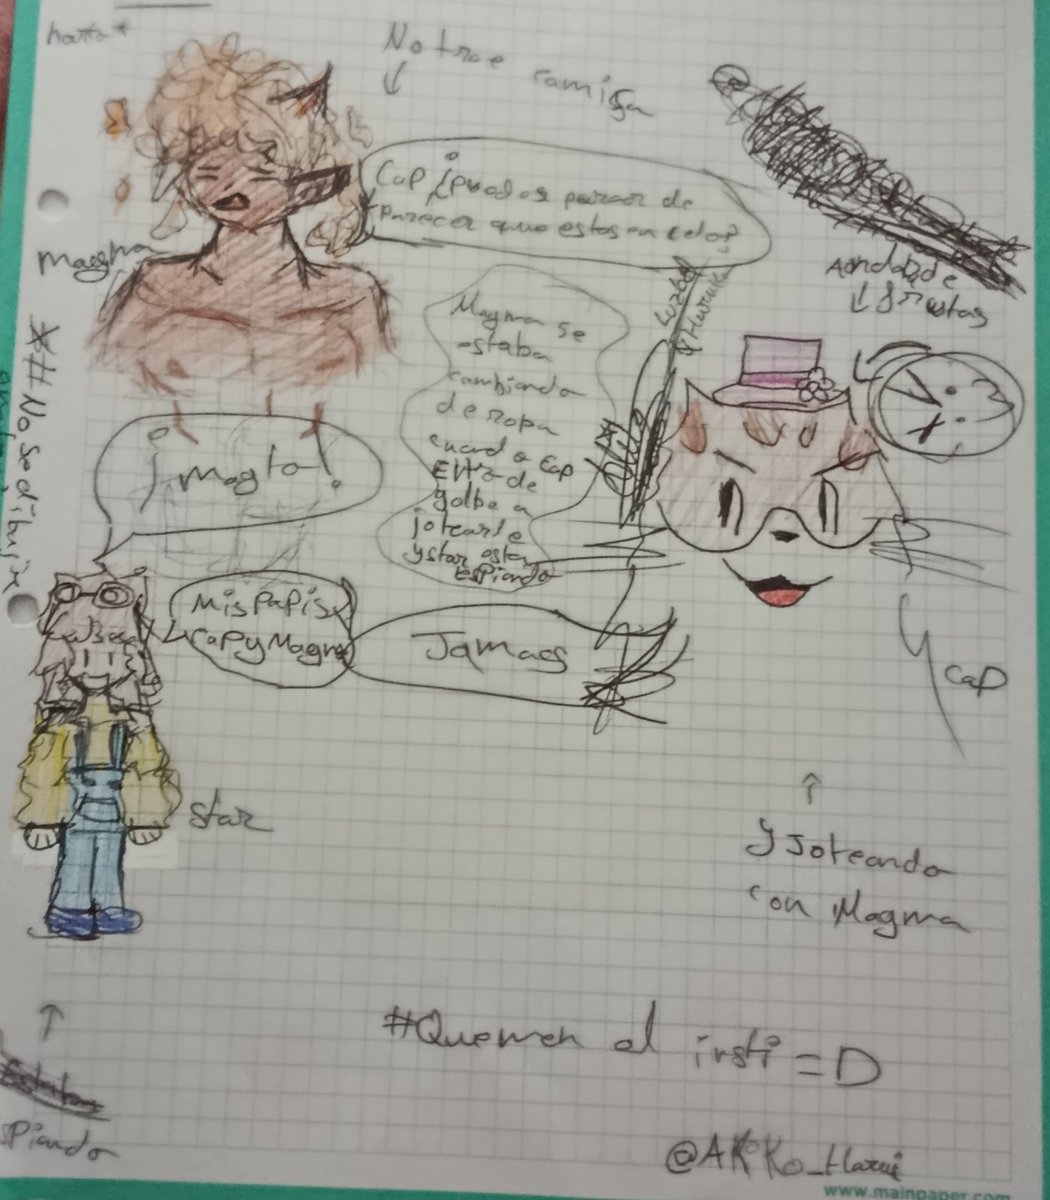 harto*
No trae camisa
Cap ¿puedes parar de
Parecer que estas en celo?
Magma
Magma se
estaba
cambiando
de ropa
cuando Cap
Entro de
golpe a
jotearle
y star esta
Espiando
¡Magto!
*#No se dibujar
Mis Papis
Cap y Magma
Jamaas
star
Cap
y Joteando
con Magma
Piando
#Quemen el insti =D
@AKKo_Harui
www.mainpaper.com